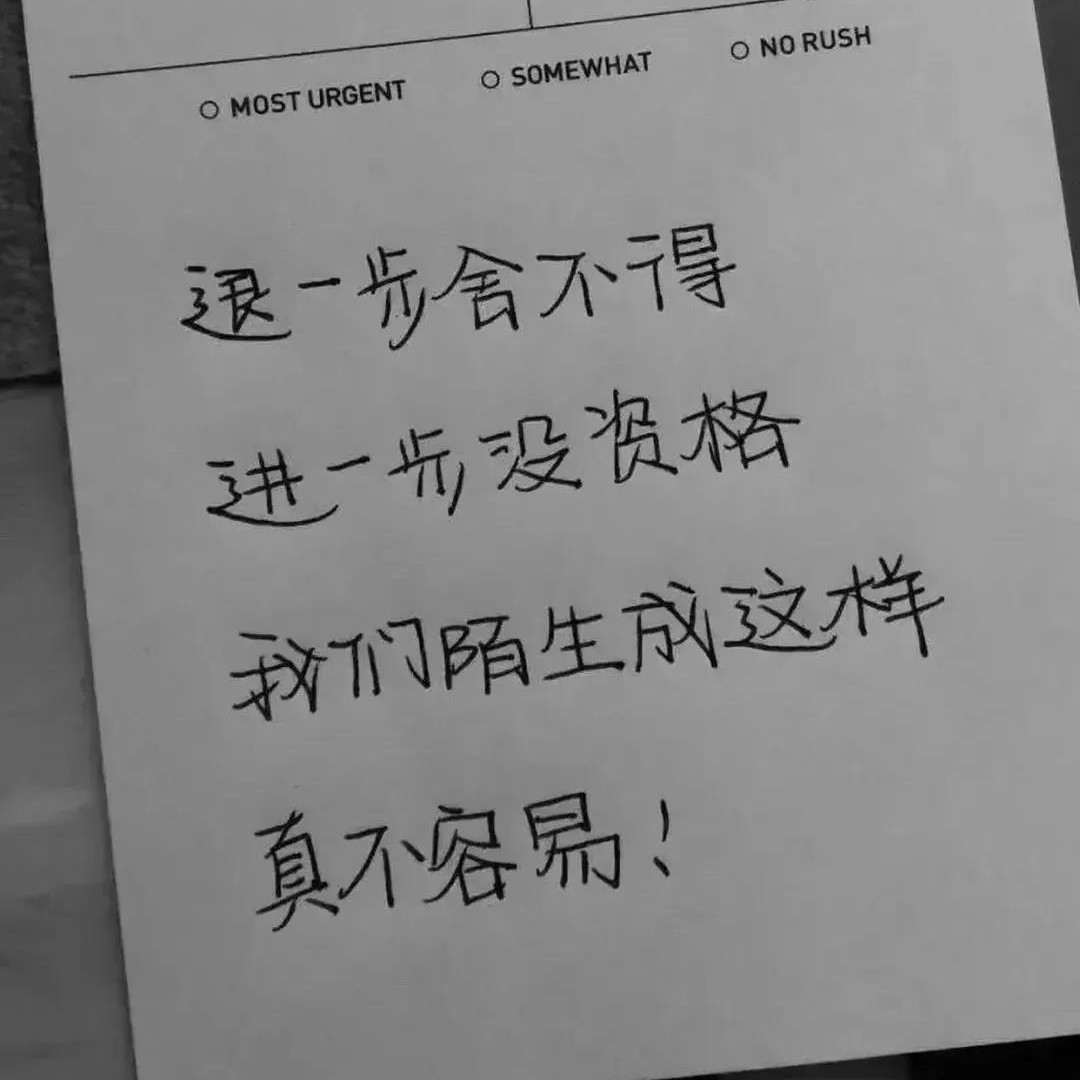 ○ MOST URGENT ○ SOMEWHAT ○ NO RUSH
退一步舍不得
进一步没资格
我们陌生成这样
真不容易！